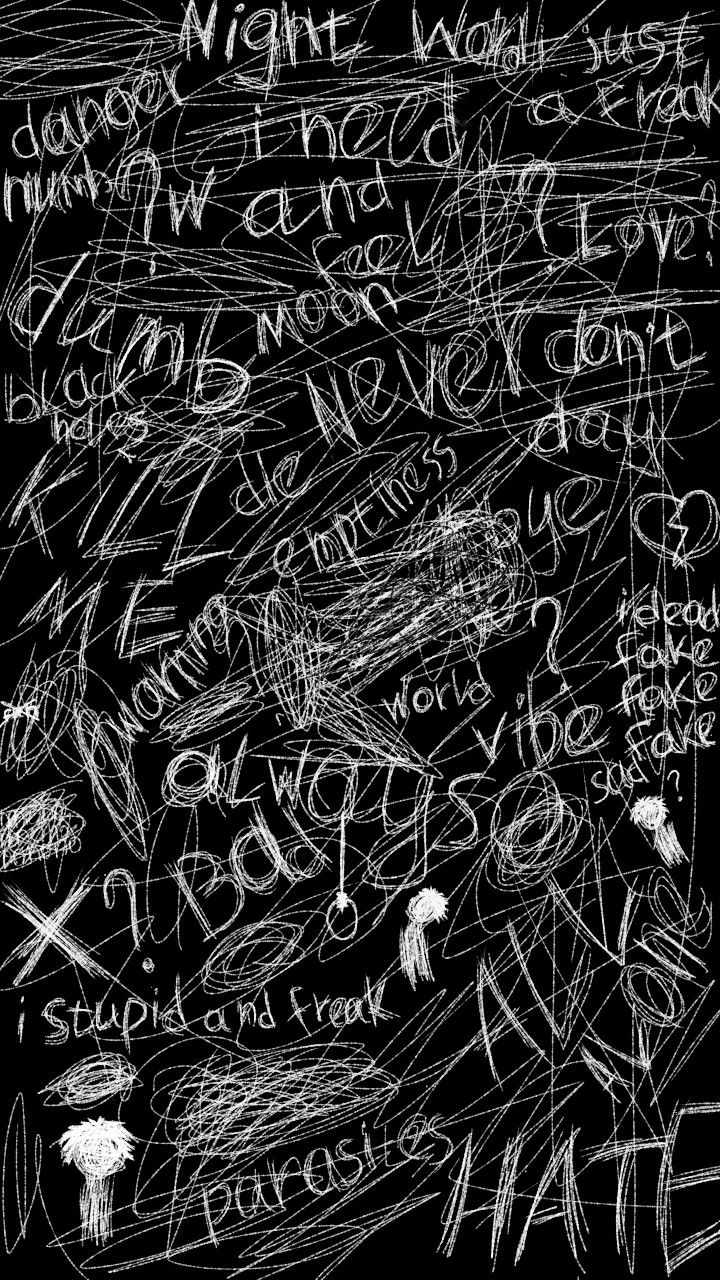 Night World just
danger i need a freak
numb ? w and
feel ? Love?
dumb moon
Never don't
black
holes
day
KILL die
emptiness
ye
ME
warning
?
i dead
fake
fake
fake
world vibe
always
sad ?
Bad
X ?
Alone
i stupid and freak
parasites
HATE